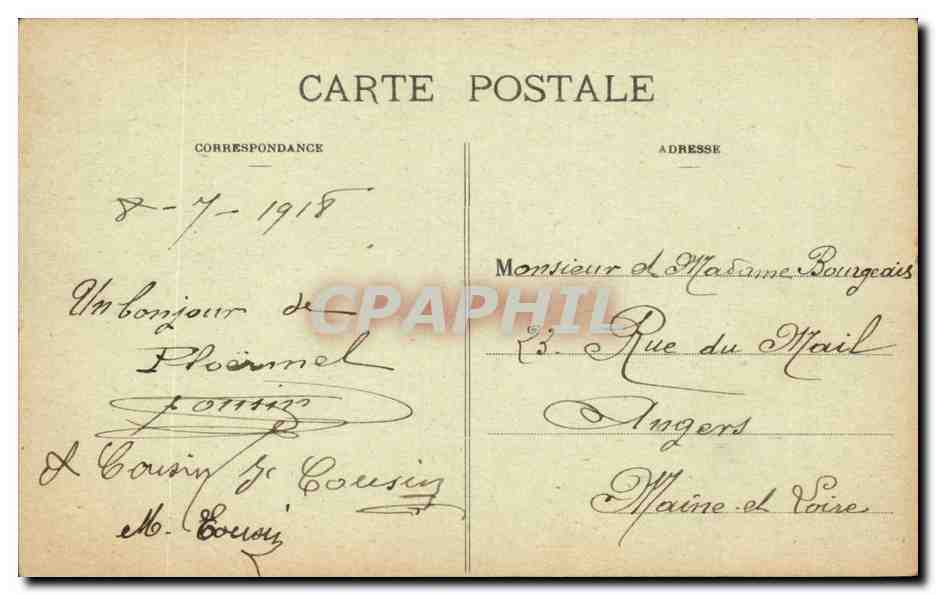 CARTE POSTALE
CORRESPONDANCE
ADRESSE
8-7-1918
Un bonjour de
Ploërmel
Cousin
M.
Monsieur et Madame Bourgeais
23. Rue du Mail
Angers
Maine-et Loire
CPAPHIL